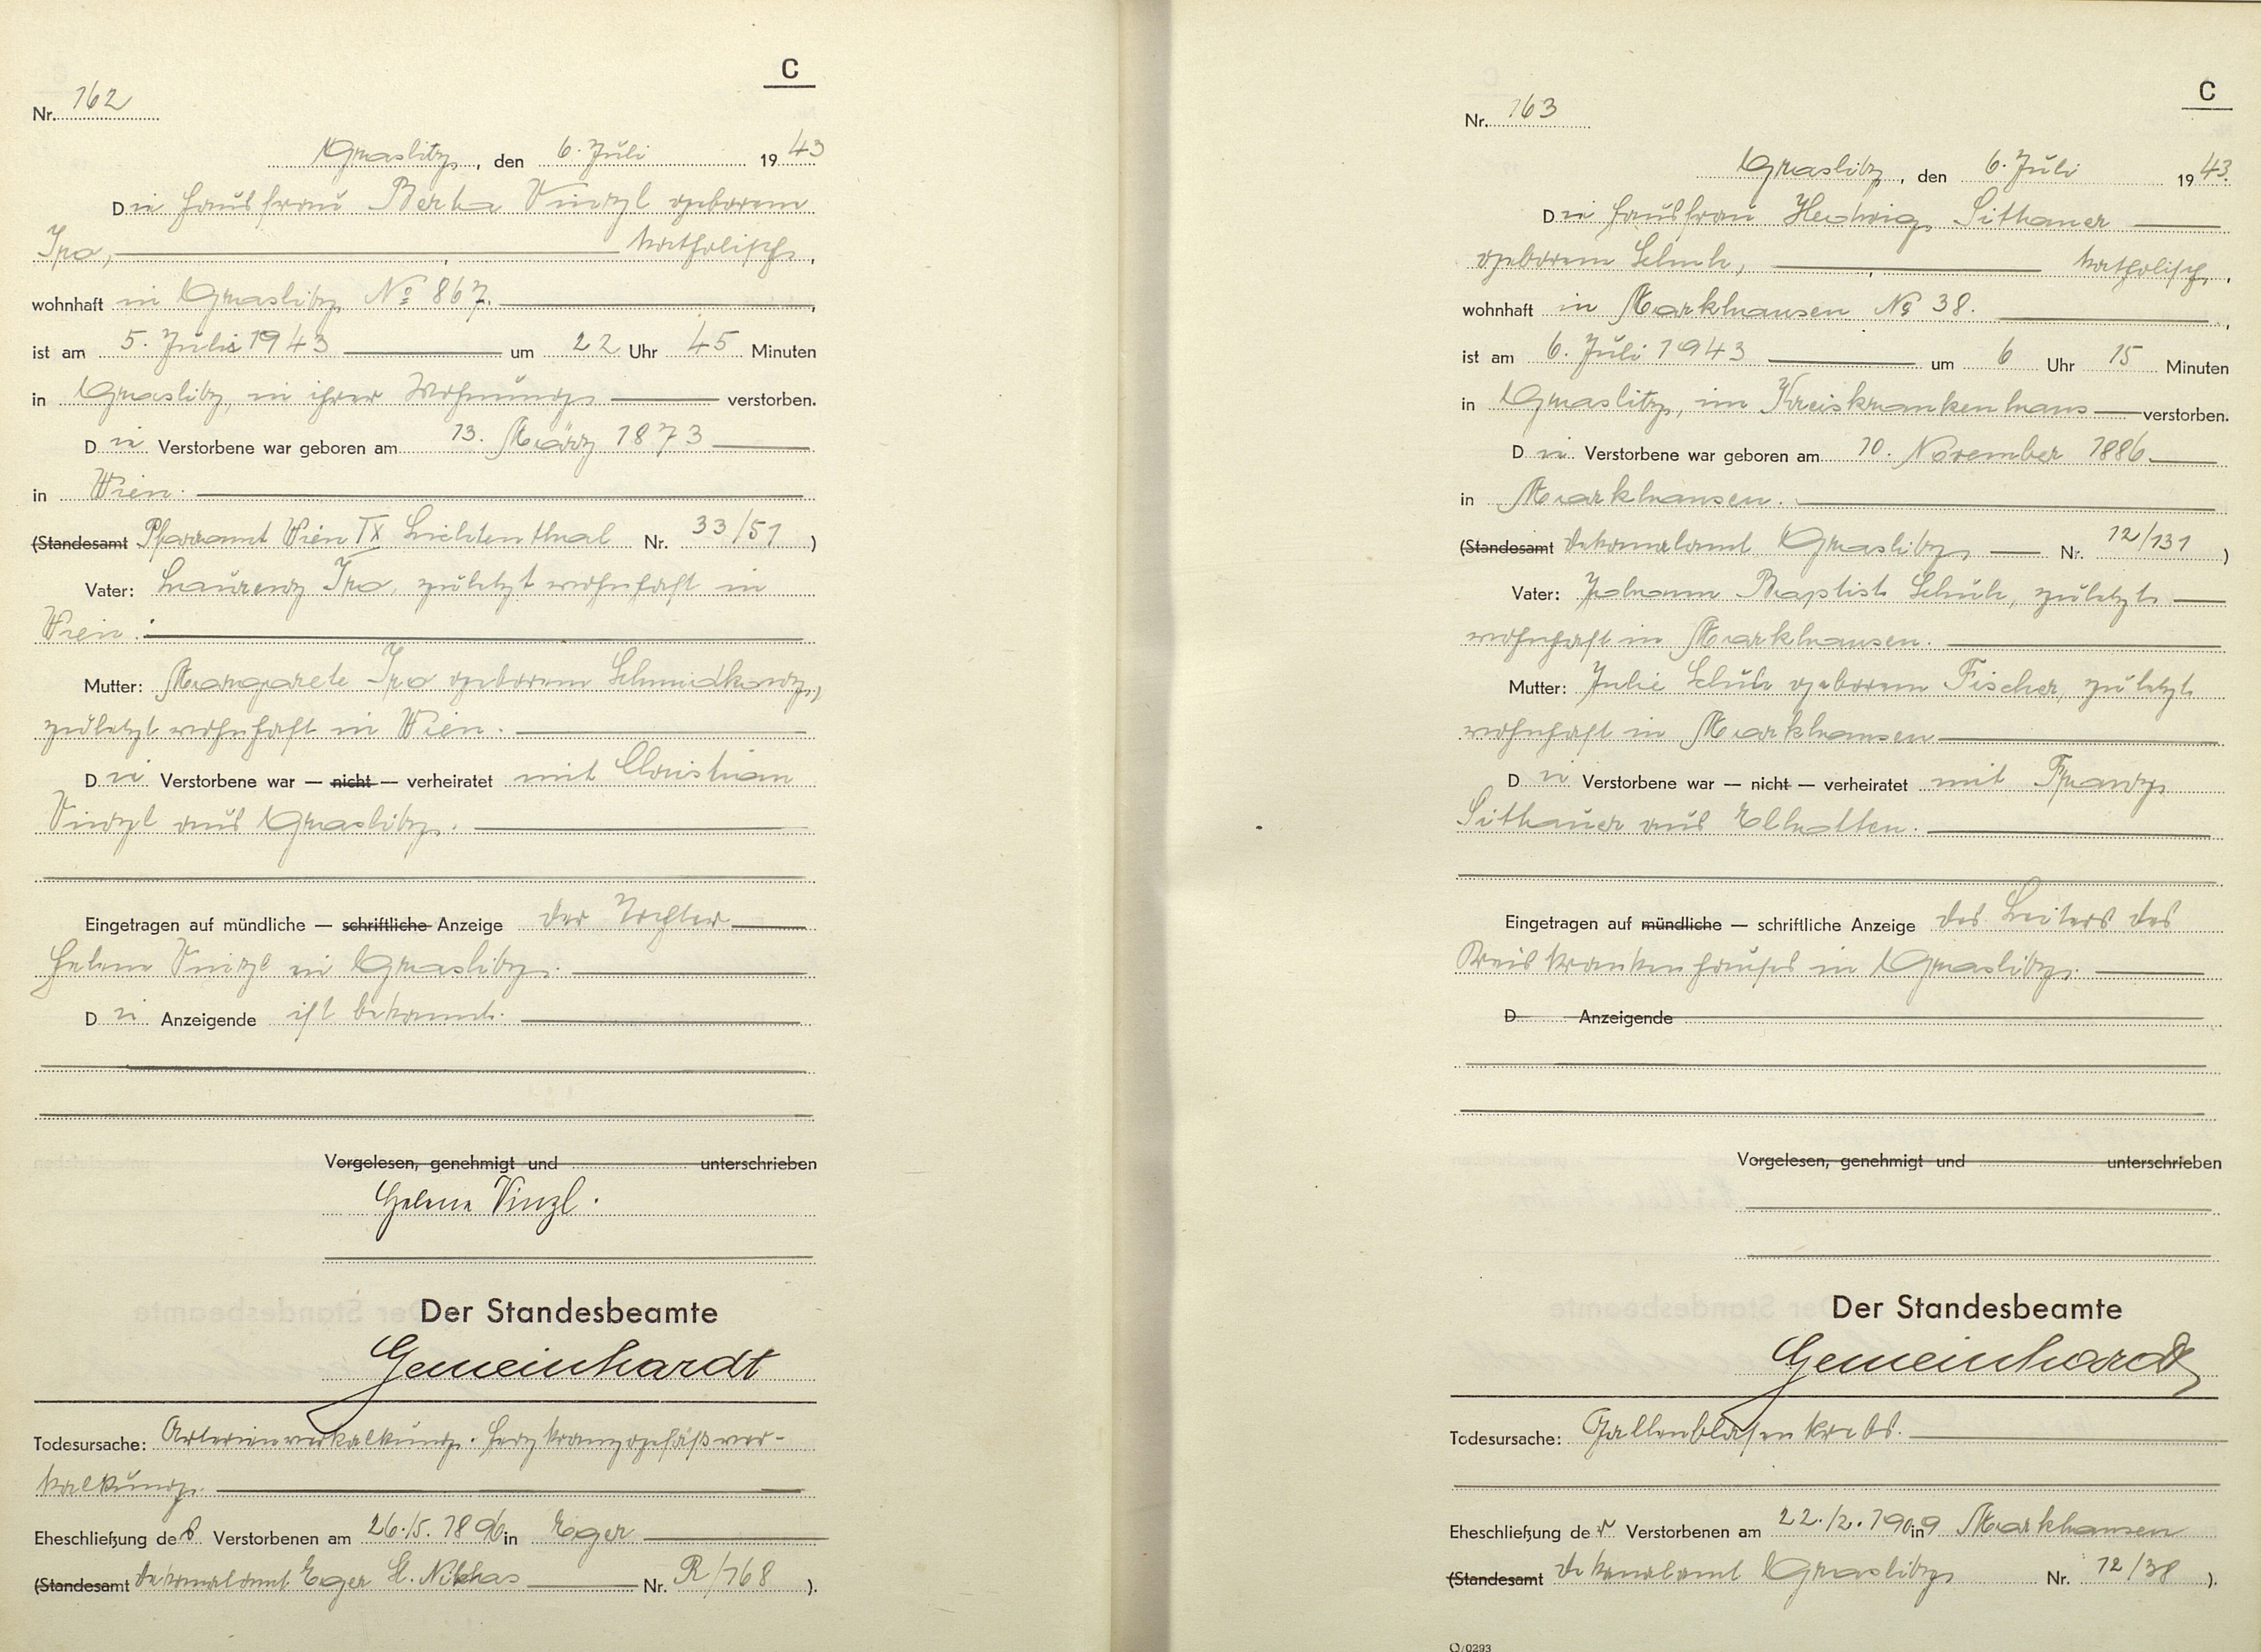 C
Nr. 162
Graslitz, den 6. Juli 1943
Die Hausfrau Berta Vinzl geborene
Ipo, katholisch,
wohnhaft in Graslitz No 867.
ist am 5. Juli 1943 um 22 Uhr 45 Minuten
in Graslitz, in ihrer Wohnung verstorben.
Die Verstorbene war geboren am 13. März 1873
in Wien.
(Standesamt Pfarramt Wien IX Liechtenthal Nr. 33/51)
Vater: Laurenz Ipo, zuletzt wohnhaft in
Wien.
Mutter: Margarete Ipo geborene Schmidkonz,
zuletzt wohnhaft in Wien.
Die Verstorbene war — nicht — verheiratet mit Christian
Vinzl aus Graslitz.
Eingetragen auf mündliche — schriftliche Anzeige der Tochter
Helene Vinzl in Graslitz.
Die Anzeigende ist bekannt.
Vorgelesen, genehmigt und unterschrieben
Helene Vinzl.
Der Standesbeamte
Gemeinhardt
Todesursache: Arterienverkalkung. Herzkranzgefäßver-
kalkung.
Eheschließung des Verstorbenen am 26.5.1896 in Eger
(Standesamt Dekanalamt Eger St. Niklas Nr. R/168).
C
Nr. 163
Graslitz, den 6. Juli 1943.
Die Hausfrau Hedwig Sitthauer
geborene Schuh, katholisch,
wohnhaft in Markhausen No 38.
ist am 6. Juli 1943 um 6 Uhr 15 Minuten
in Graslitz, im Kreiskrankenhaus verstorben.
Die Verstorbene war geboren am 10. November 1886
in Markhausen.
(Standesamt Dekanalamt Graslitz Nr. 12/131)
Vater: Johann Baptist Schuh, zuletzt
wohnhaft in Markhausen.
Mutter: Julie Schuh geborene Fischer, zuletzt
wohnhaft in Markhausen
Die Verstorbene war — nicht — verheiratet mit Franz
Sitthauer aus
Eingetragen auf mündliche — schriftliche Anzeige des Leiters des
Kreiskrankenhauses in Graslitz.
D Anzeigende
Vorgelesen, genehmigt und unterschrieben
Der Standesbeamte
Gemeinhardt
Todesursache: Gallenblasenkrebs.
Eheschließung der Verstorbenen am 22.2.1909 in Markhausen
(Standesamt Dekanalamt Graslitz Nr. 12/38).
O/0293